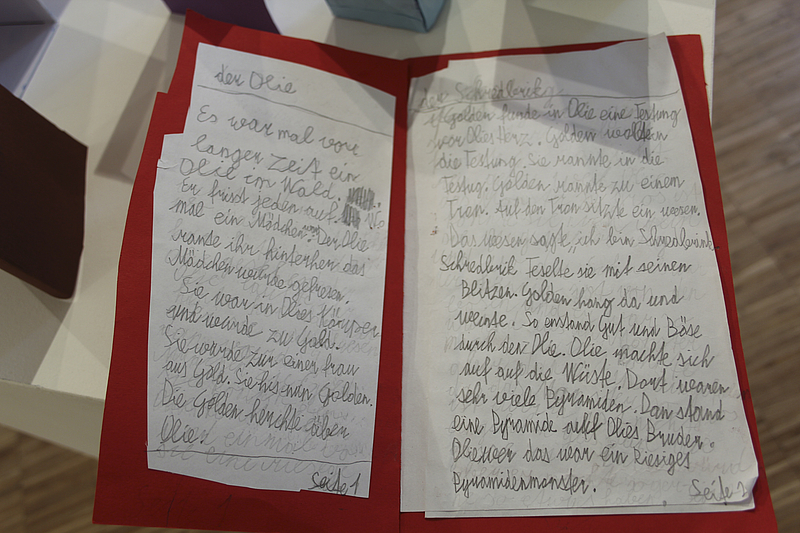 der Olie
Es war mal vor
langer Zeit ein
Olie im Wald.
Er frisst jeden auf.
mal ein Mädchen. Der Olie
rante ihr hinterher das
Mädchen wurde gefresen.
Sie war in Olies Körper
und wurde zu Gold.
Sie wurde zur einer frau
aus Gold. Sie his nun Golden.
Die Golden herschte über
Olie.
Seite 1
der Schredlerik
Golden funde in Olie eine Festung
vor Olies Herz. Golden wolte in
die Festung. Sie rannte in die
Festug. Golden rannte zu einem
Tron. Auf den Tron sitzte ein wesen.
Das wesen sagte, ich bin Schredlerik
Schredlerik Feselte sie mit seinen
Blitzen. Golden hang da und
weinte. So enstand Gut und Böse
durch den Olie. Olie machte sich
auf auf die Wüste. Dort waren
sehr viele Pyramiden. Dan stand
eine Pyramide auf Olies Bruder.
Oliewer das war ein Riesiges
Pyramidenmonster.
Seite 2